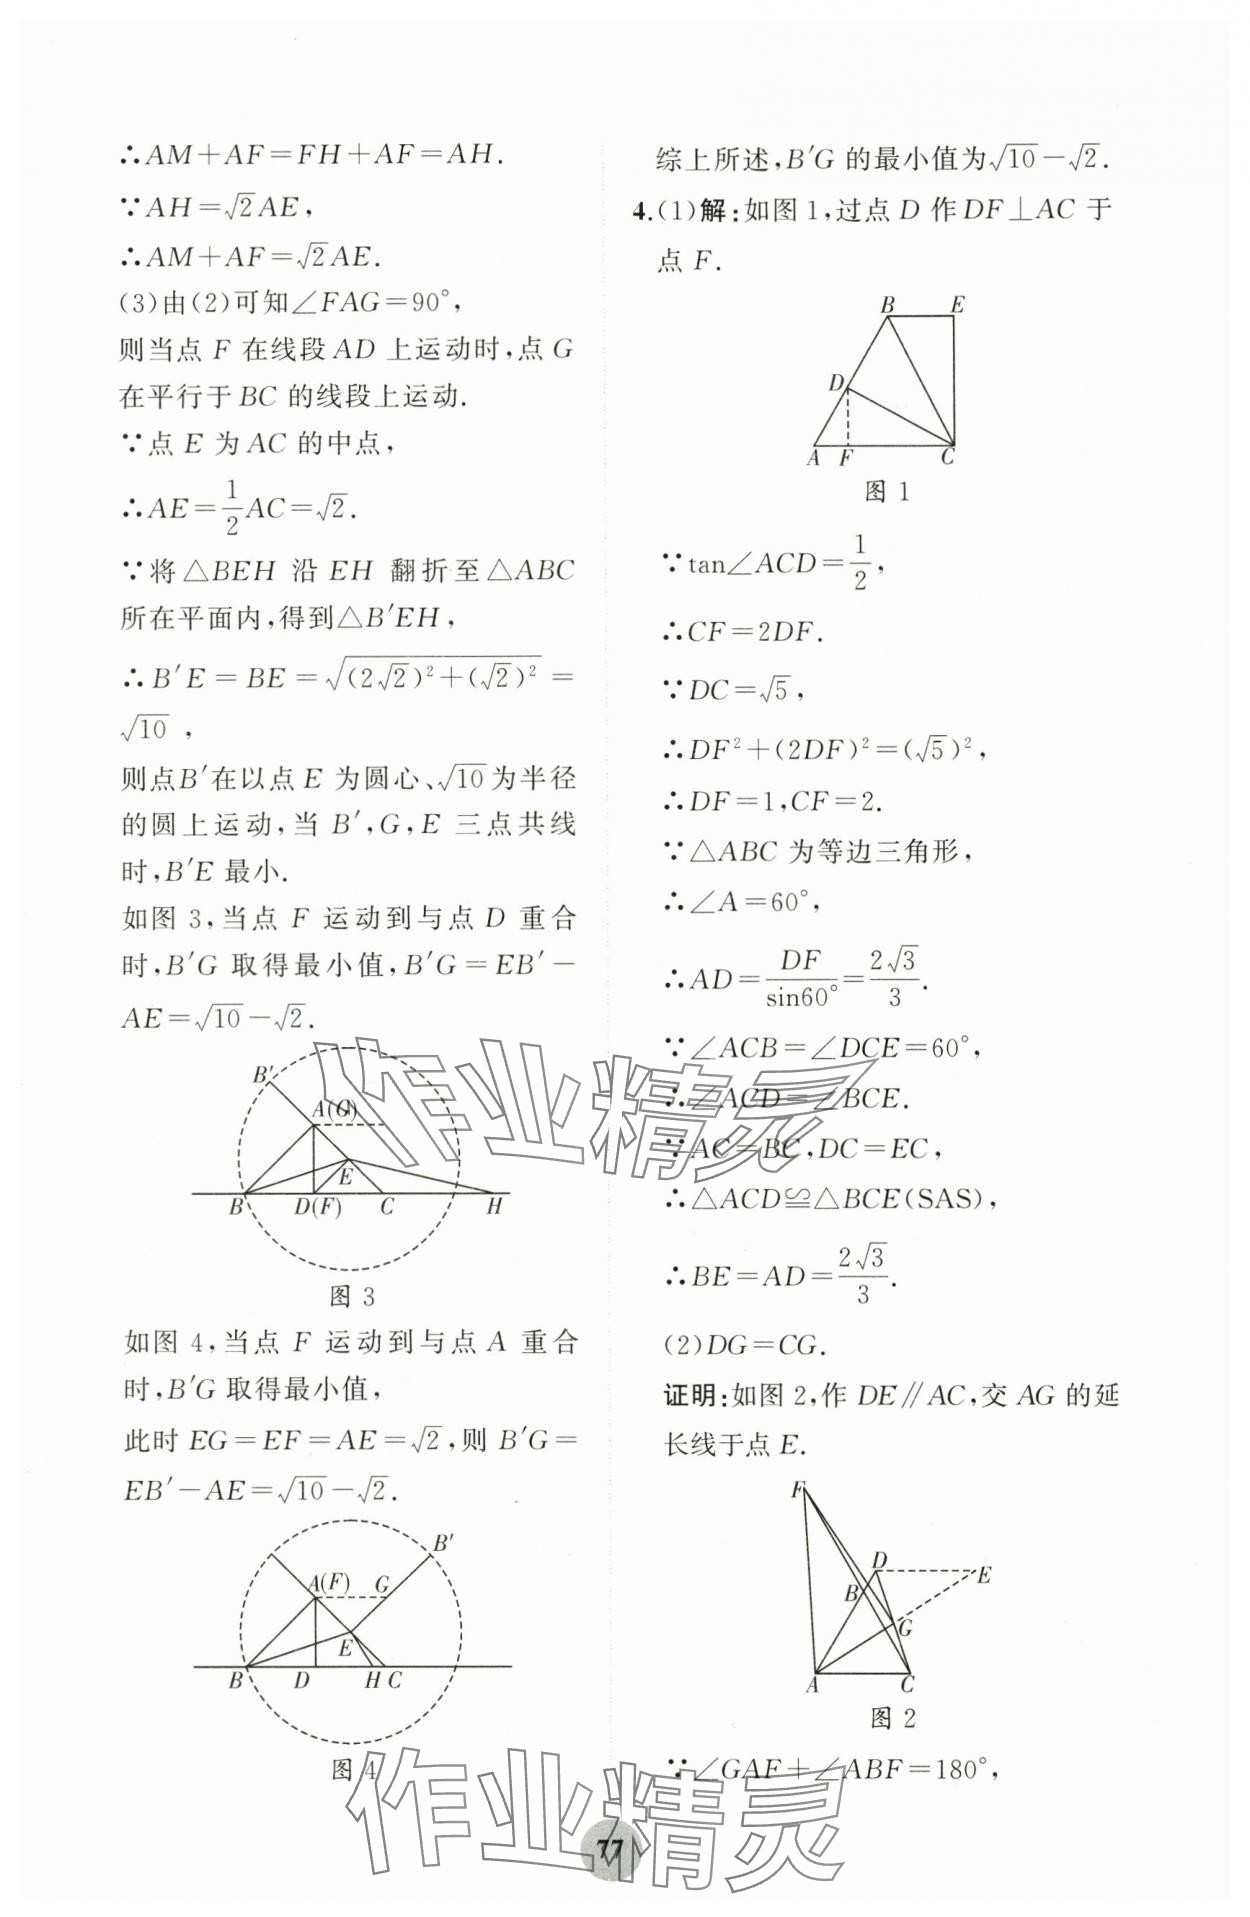 ∴AM+AF=FH+AF=AH.
∵AH=√2AE,
∴AM+AF=√2AE.
(3)由(2)可知∠FAG=90°,
则当点 F 在线段 AD 上运动时,点 G
在平行于 BC 的线段上运动.
∵点 E 为 AC 的中点,
∴AE=1/2AC=√2.
∵将△BEH 沿 EH 翻折至△ABC
所在平面内,得到△B′EH,
∴B′E=BE=√((2√2)²+(√2)²)=
√10,
则点B′在以点 E 为圆心、√10为半径
的圆上运动,当 B′,G,E 三点共线
时,B′E 最小.
如图 3,当点 F 运动到与点 D 重合
时,B′G 取得最小值,B′G=EB′-
AE=√10-√2.
B′
A(G)
E
B
D(F)
C
H
图 3
如图 4,当点 F 运动到与点 A 重合
时,B′G 取得最小值,
此时 EG=EF=AE=√2,则 B′G=
EB′-AE=√10-√2.
B′
A(F)
G
E
B
D
H
C
图 4
综上所述,B′G 的最小值为√10-√2.
4.(1)解:如图 1,过点 D 作 DF⊥AC 于
点 F.
B
E
D
A
F
C
图 1
∵tan∠ACD=1/2,
∴CF=2DF.
∵DC=√5,
∴DF²+(2DF)²=(√5)²,
∴DF=1,CF=2.
∵△ABC 为等边三角形,
∴∠A=60°,
∴AD=DF/sin60°=2√3/3.
∵∠ACB=∠DCE=60°,
∴∠ACD=∠BCE.
∵AC=BC,DC=EC,
∴△ACD≌△BCE(SAS),
∴BE=AD=2√3/3.
(2)DG=CG.
证明:如图 2,作 DE∥AC,交 AG 的延
长线于点 E.
F
D
E
B
G
A
C
图 2
∵∠GAF+∠ABF=180°,
作业精灵
作业精灵
77